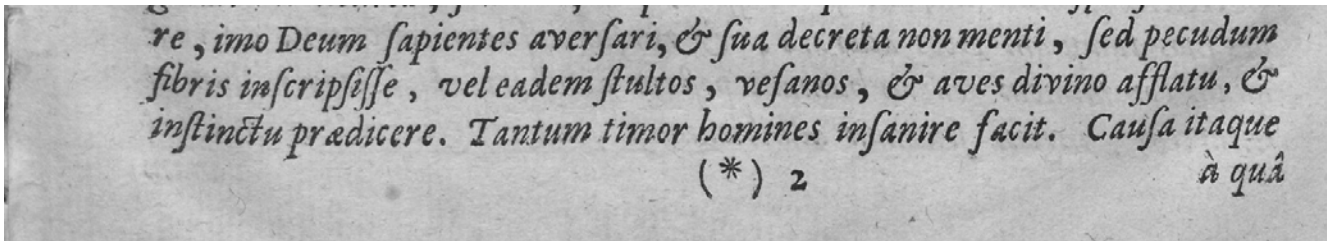 re, imo Deum ſapientes averſari, & ſua decreta non menti, ſed pecudum
fibris inſcripſiſſe, vel eadem ſtultos, veſanos, & aves divino afflatu, &
inſtinctu prædicere. Tantum timor homines inſanire facit. Cauſa itaque
(*) 2 à quâ